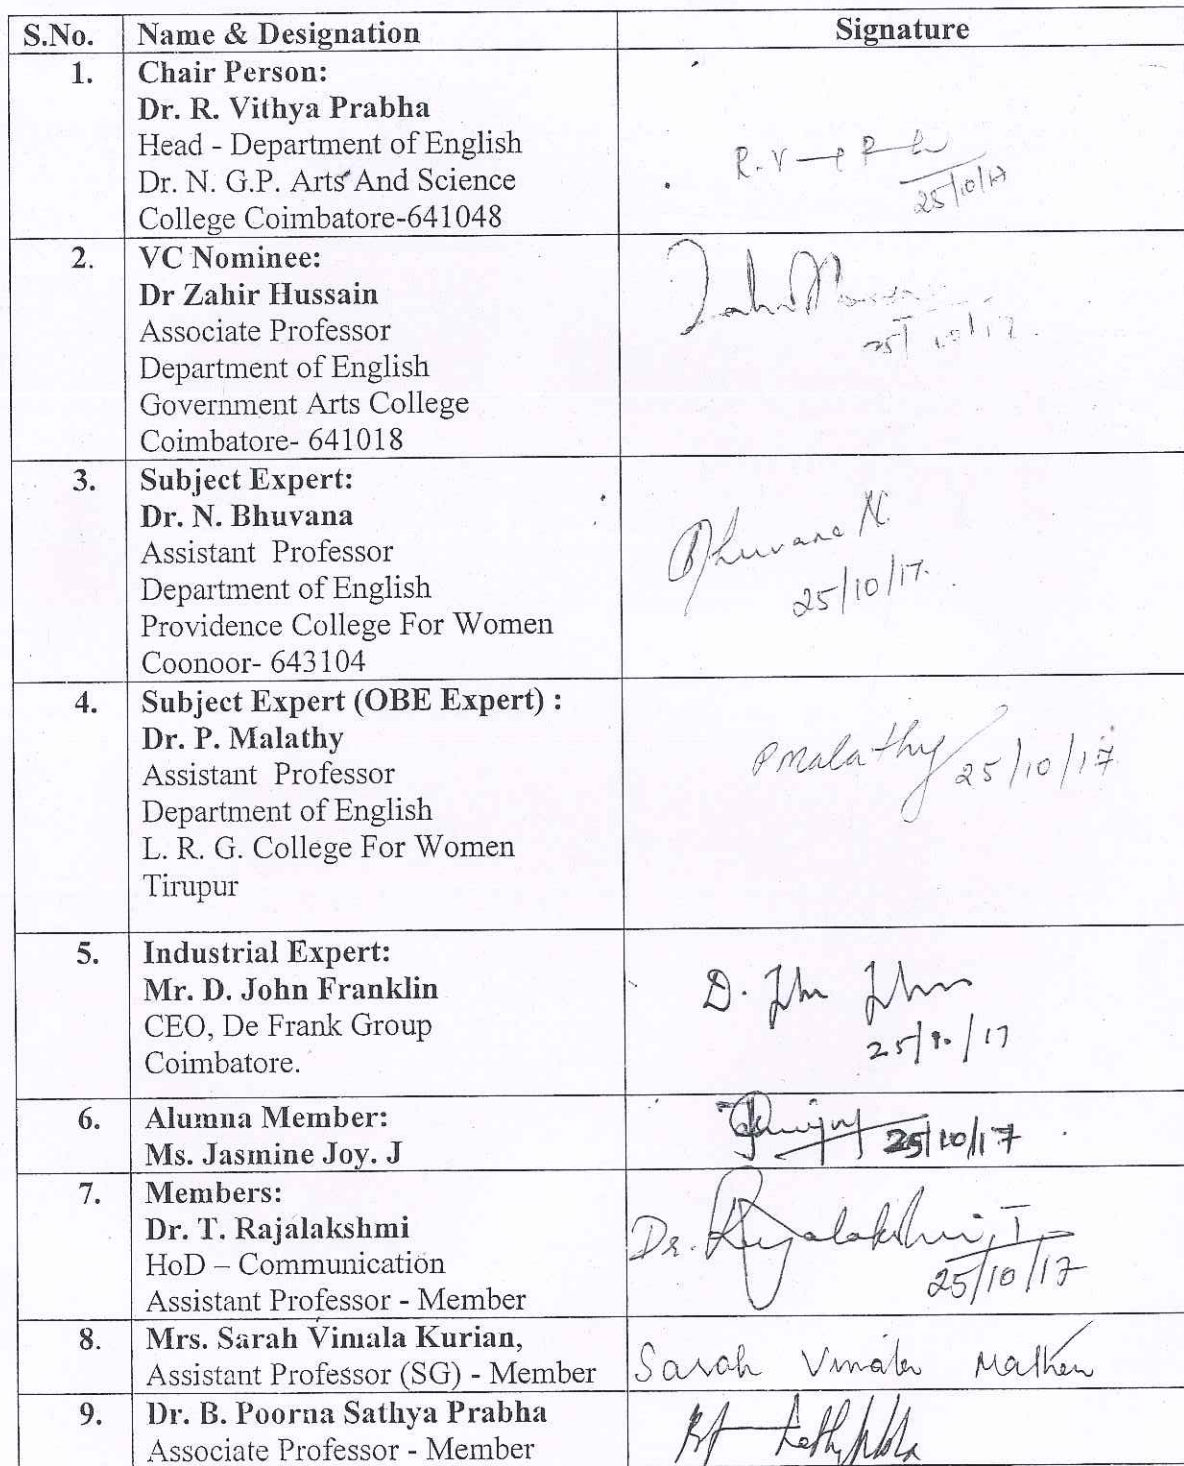 S.No. Name & Designation Signature
1. Chair Person:
Dr. R. Vithya Prabha
Head - Department of English
Dr. N. G.P. Arts And Science
College Coimbatore-641048
R.V
25/10/17
2. VC Nominee:
Dr Zahir Hussain
Associate Professor
Department of English
Government Arts College
Coimbatore- 641018
25/10/17.
3. Subject Expert:
Dr. N. Bhuvana
Assistant Professor
Department of English
Providence College For Women
Coonoor- 643104
Bhuvana N.
25/10/17.
4. Subject Expert (OBE Expert) :
Dr. P. Malathy
Assistant Professor
Department of English
L. R. G. College For Women
Tirupur
P Malathy 25/10/17
5. Industrial Expert:
Mr. D. John Franklin
CEO, De Frank Group
Coimbatore.
D. John
25/10/17
6. Alumna Member:
Ms. Jasmine Joy. J
25/10/17
7. Members:
Dr. T. Rajalakshmi
HoD – Communication
Assistant Professor - Member
Dr. Rajalakshmi, T
25/10/17
8. Mrs. Sarah Vimala Kurian,
Assistant Professor (SG) - Member
Sarah Vimala Mathew
9. Dr. B. Poorna Sathya Prabha
Associate Professor - Member